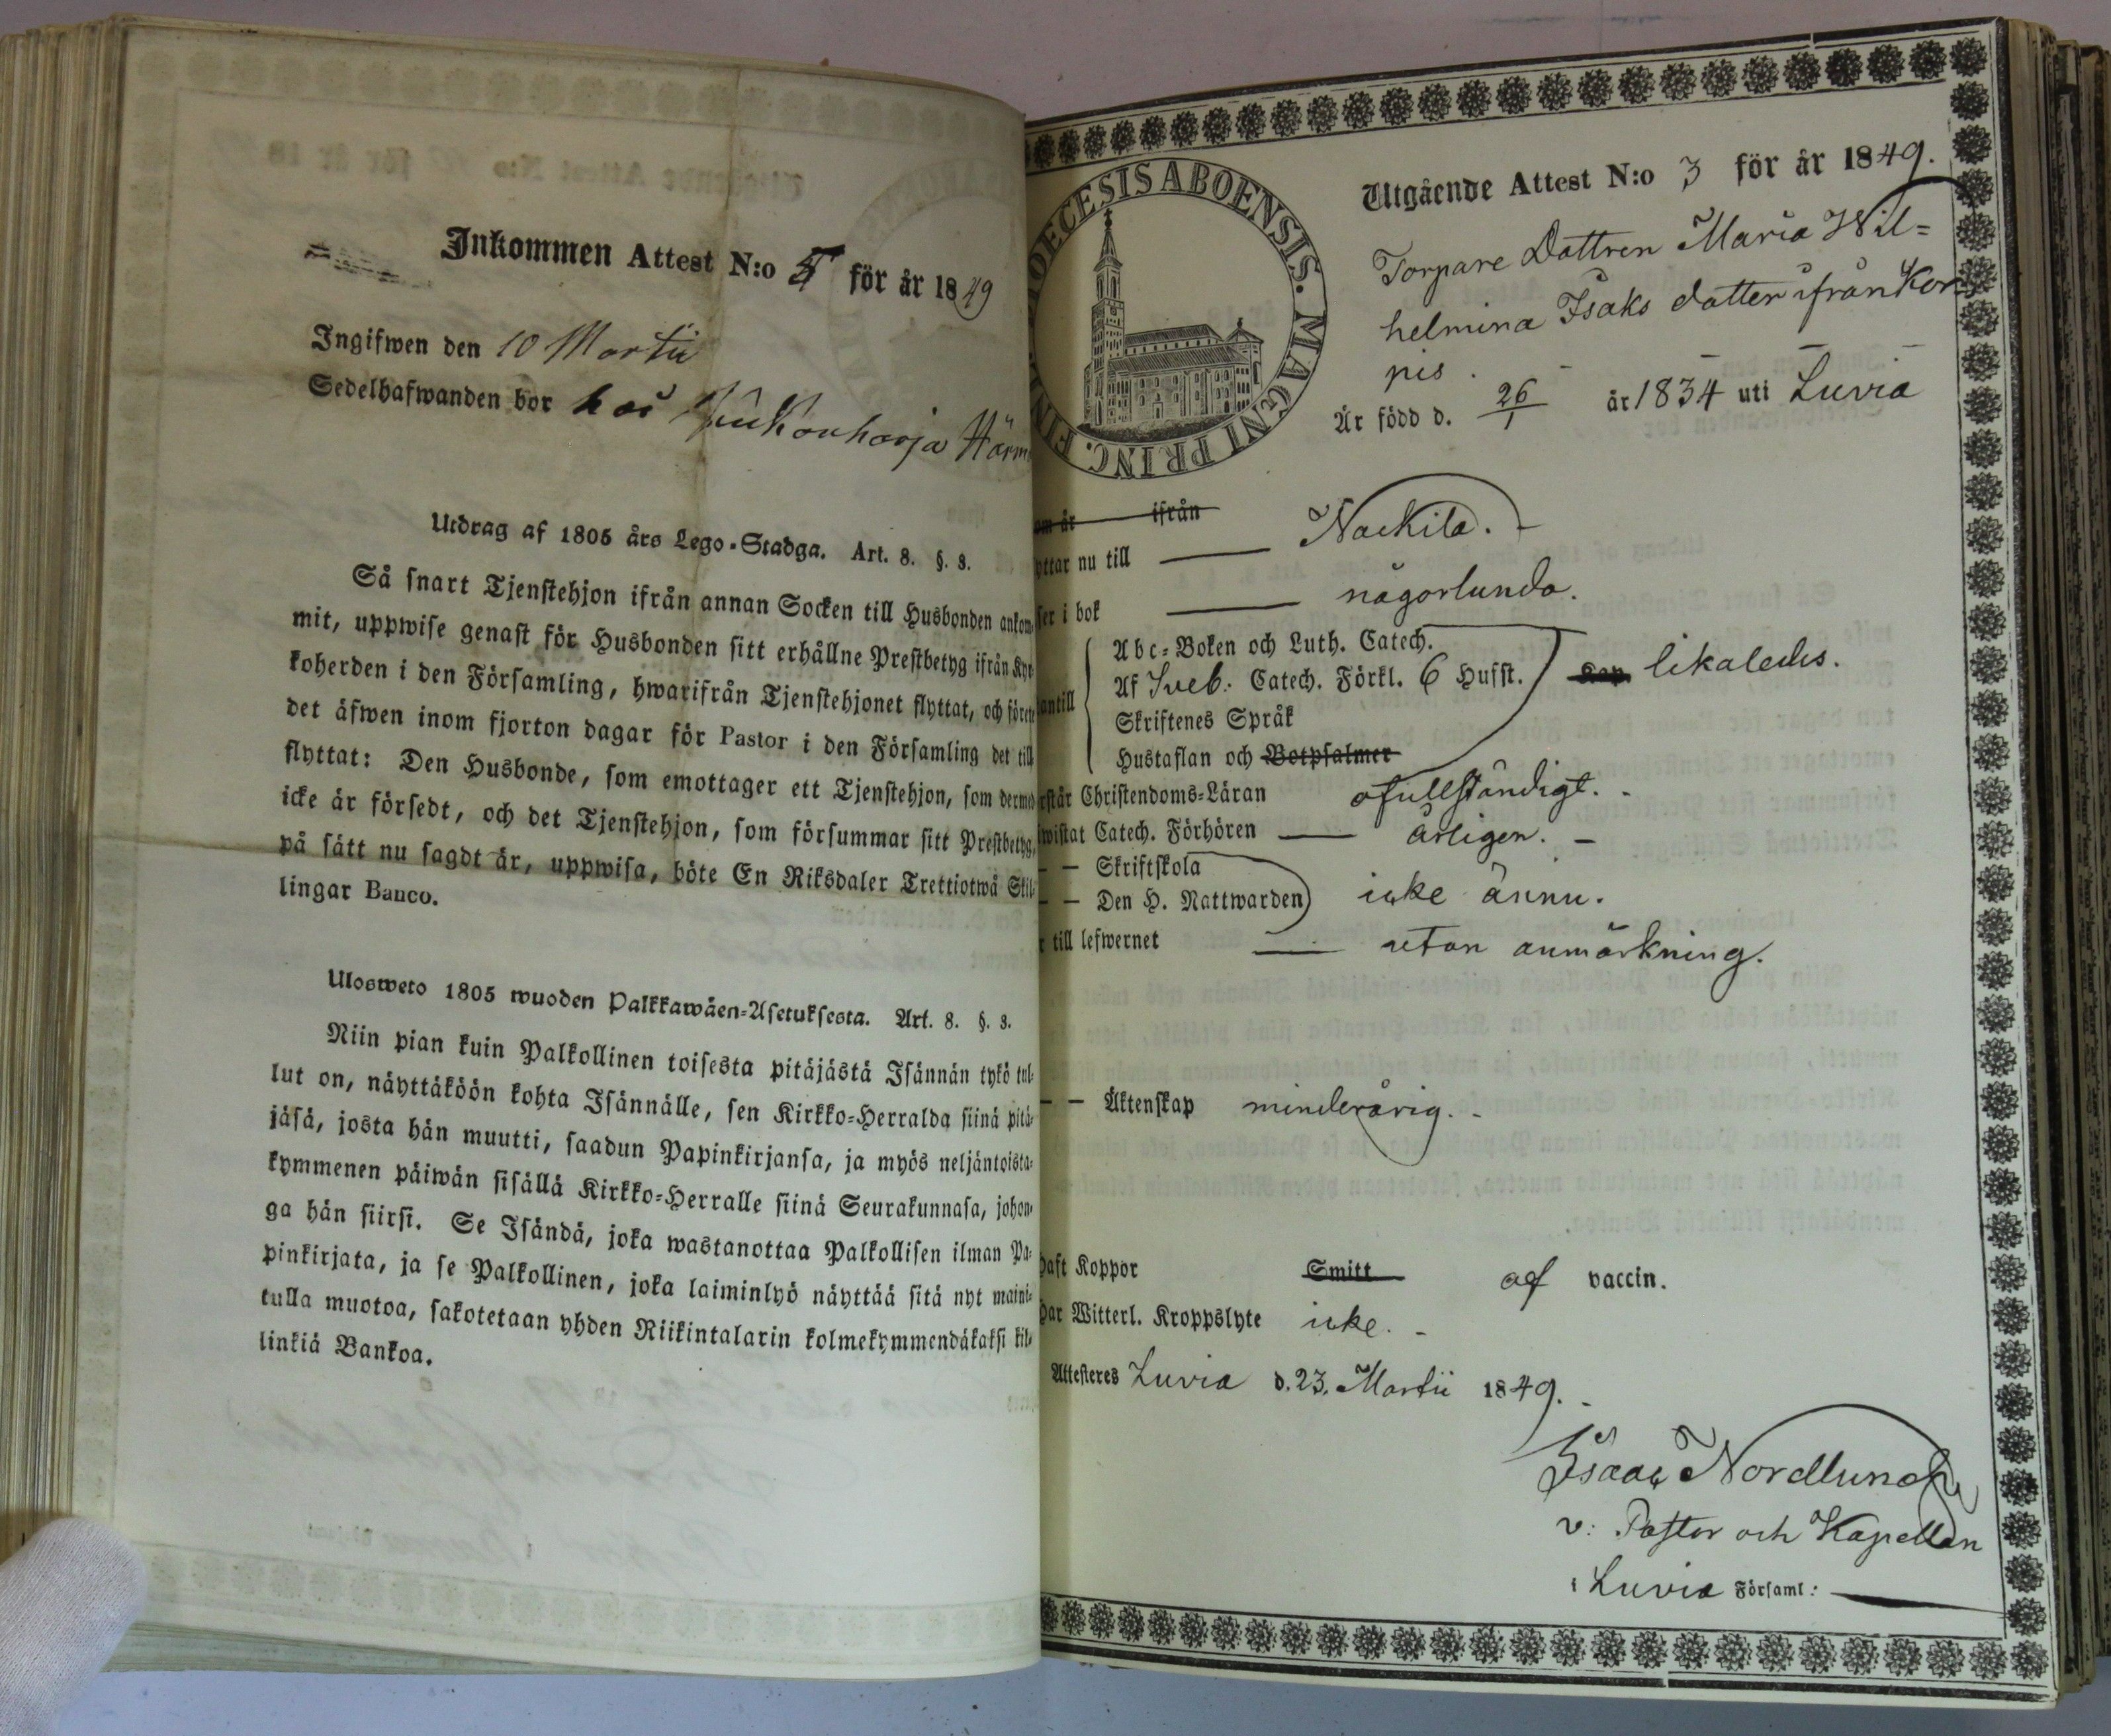 Inkommen Attest N:o 5 för år 1849
Ingifwen den 10 Martii
Sedelhafwanden bor hos
Utdrag af 1805 års Lego-Stadga. Art. 8. §. 3.
Så snart Tjenstehjon ifrån annan Socken till Husbonden ankom-
mit, uppwise genast för Husbonden sitt erhållne Prestbetyg ifrån Kyr-
koherden i den Församling, hwarifrån Tjenstehjonet flyttat, och förete
det äfwen inom fjorton dagar för Pastor i den Församling det till
flyttat: Den Husbonde, som emottager ett Tjenstehjon, som dermed
icke är försedt, och det Tjenstehjon, som försummar sitt Prestbetyg,
på sätt nu sagdt är, uppwisa, böte En Riksdaler Trettiotwå Skil-
lingar Banco.
Ulosweto 1805 wuoden Palkkawäen-Asetuksesta. Art. 8. §. 3.
Niin pian kuin Palkollinen toisesta pitäjästä Isännän tykö tul-
lut on, näyttäköön kohta Isännälle, sen Kirkko-Herralda siinä pitä-
jäsä, josta hän muutti, saadun Papinkirjansa, ja myös neljäntoista-
kymmenen päiwän sisällä Kirkko-Herralle siinä Seurakunnasa, johon-
ga hän siirsi. Se Isändä, joka wastanottaa Palkollisen ilman Pa-
pinkirjata, ja se Palkollinen, joka laiminlyö näyttää sitä nyt maini-
tulla muotoa, sakotetaan yhden Riikintalarin kolmekymmendäkaksi kil-
linkiä Bankoa.
DIOECESIS ABOENSIS. MAGNI PRINC. FIN
Utgående Attest N:o 3 för år 1849.
Torpare Dottren Maria Wil=
helmina Isaks dotter ifrån Kor
pis.
Är född d. 26/1 år 1834 uti Luvia
om år ifrån
yttar nu till Nackila.
ser i bok någorlunda.
Abc-Boken och Luth. Catech.
Af Sveb: Catech. Förkl. 6 Hufst. Kap. likaledes.
antill
Skriftenes Språk
Hustaflan och Botpsalmer
rstår Christendoms-Läran ofullständigt.
iwistat Catech. Förhören årligen.
— — Skriftskola
— — Den H. Nattwarden icke ännu.
r till lefwernet utan anmärkning.
— — Äktenskap minderårig.
haft Koppor Smitt af vaccin.
har Witterl. Kroppslyte icke.
Attesteres Luvia d. 23. Martii 1849.
Isaac Nordlund
v: Pastor och Kapellan
i Luvia Församl: